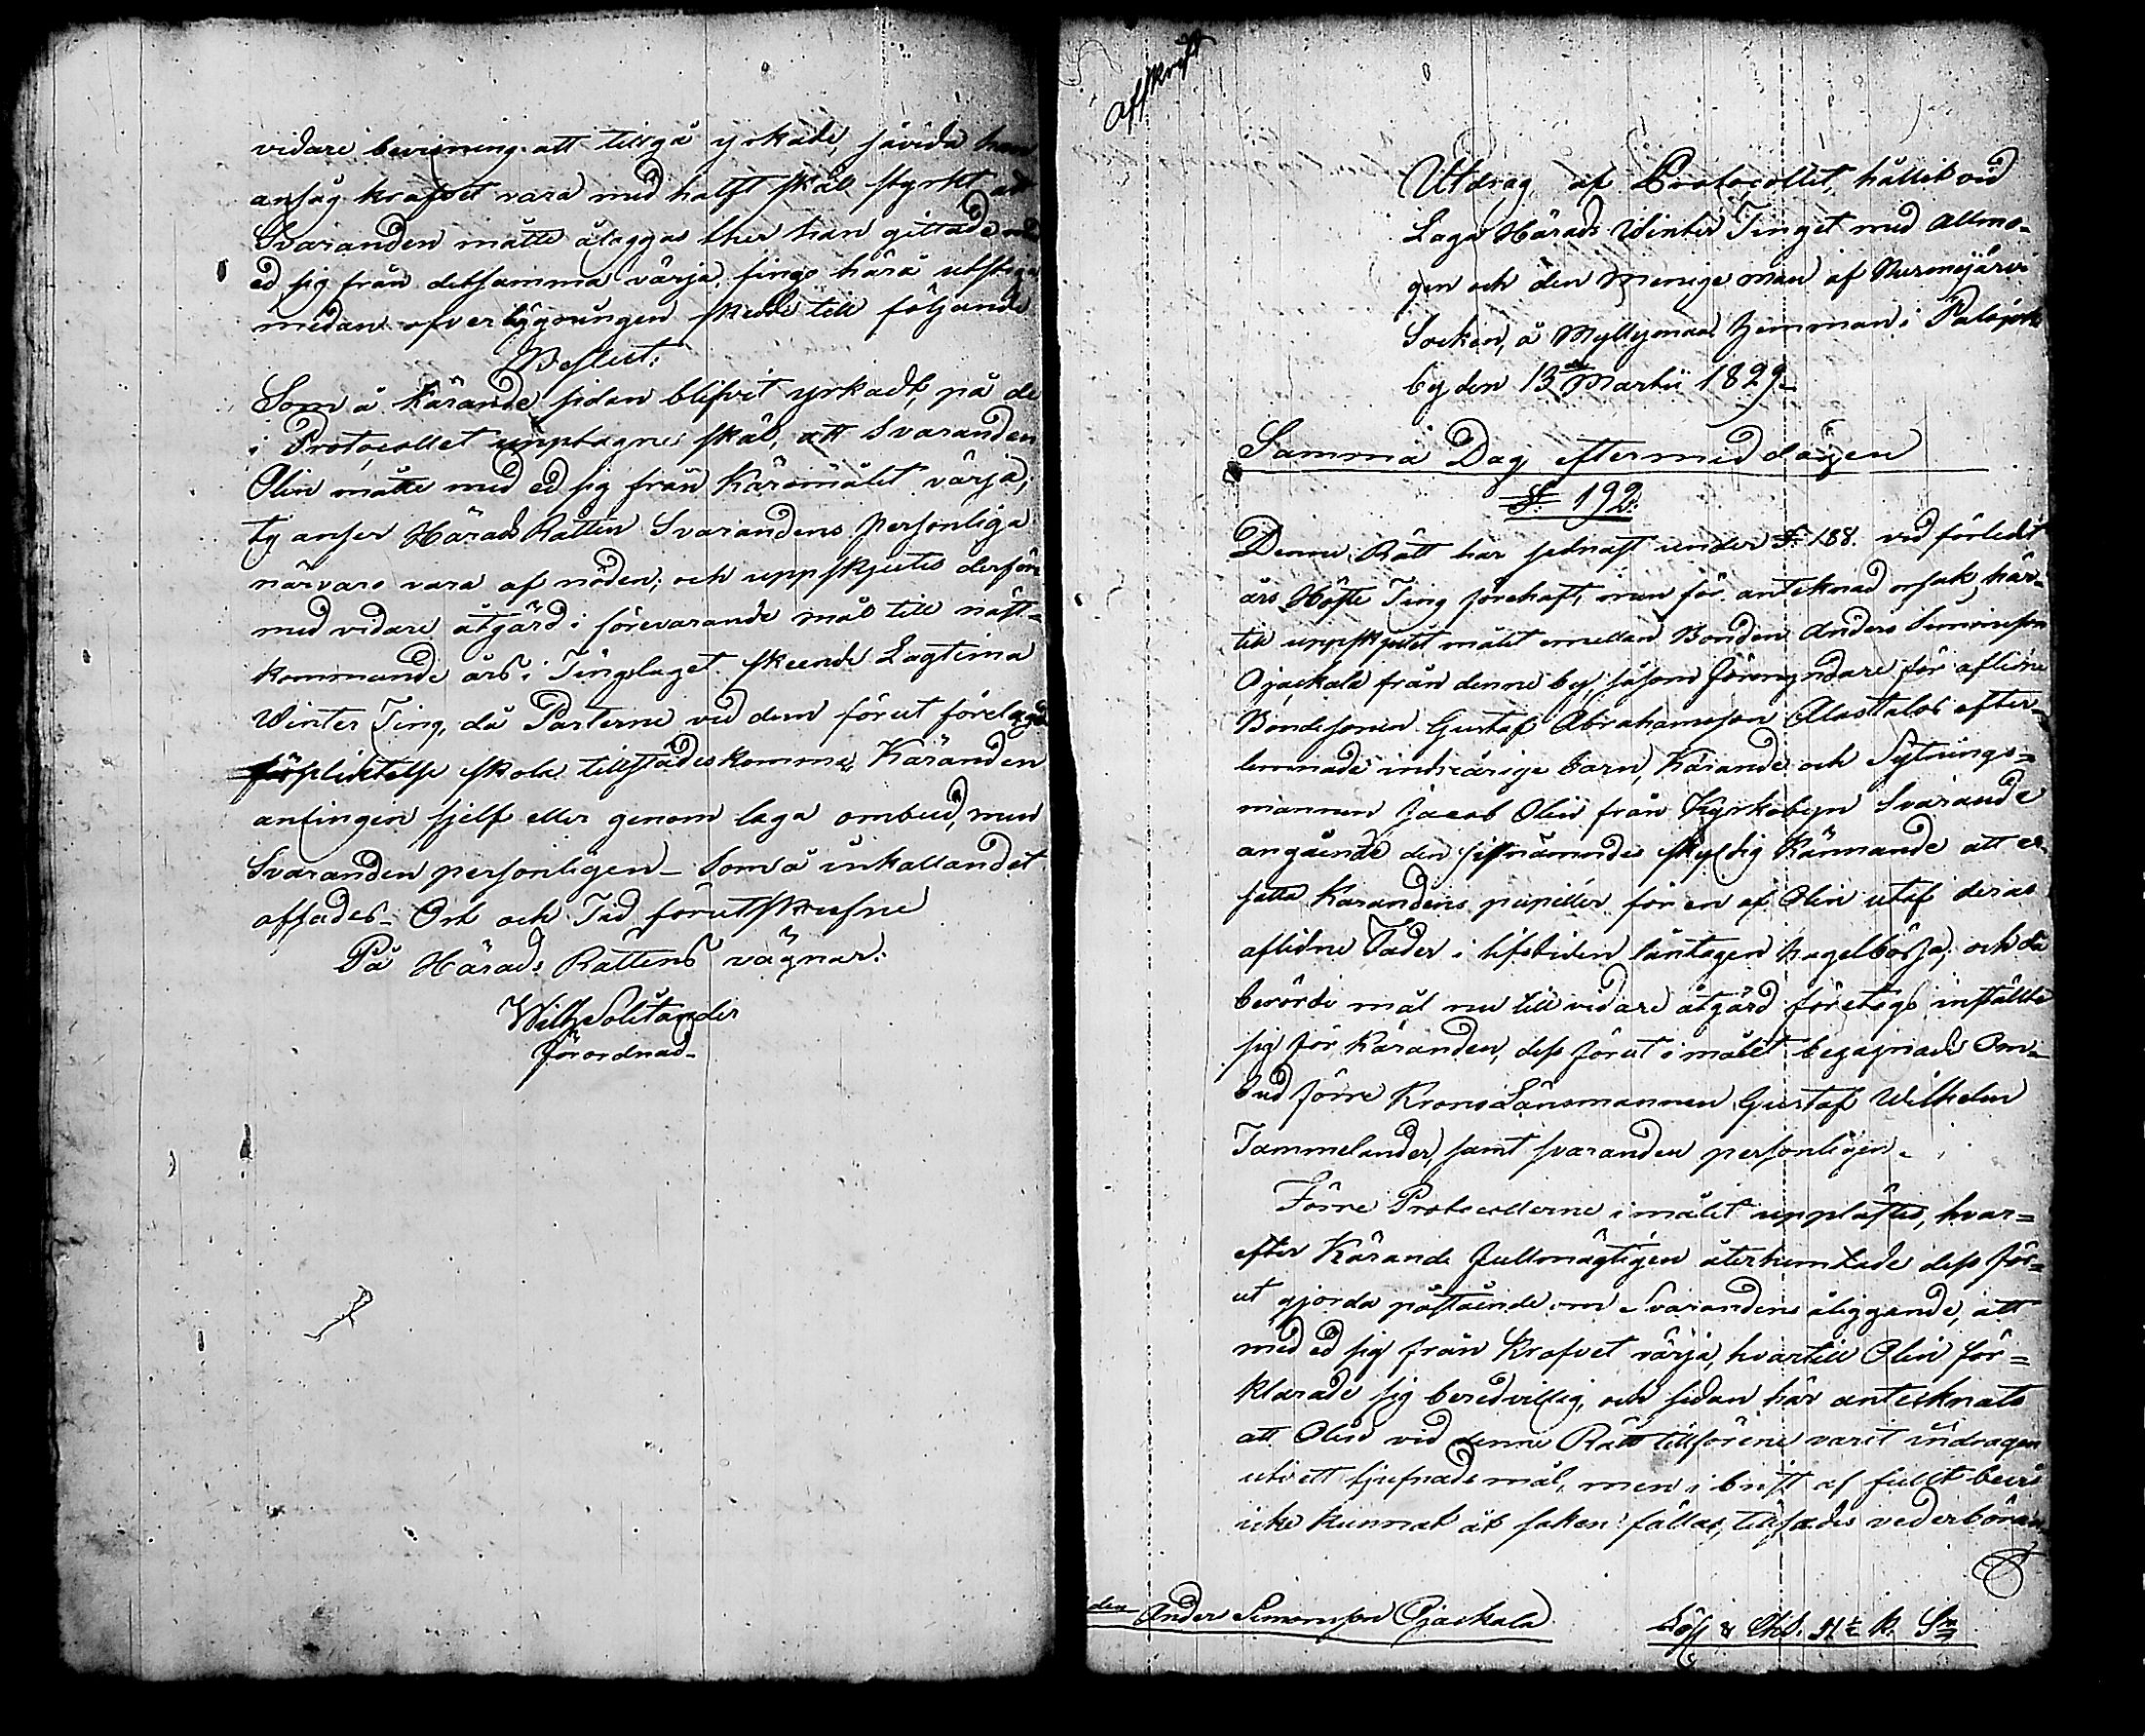 vidare bevisning att tillgå yrkade, såvida han
ansåg krafvet vara med halft skäl styrkt att
Svaranden måtte åläggas ther han gittade med
ed sig från detsamma värja, fingo härå utstiga
medan öfverläggningen skedde till följande
Beslut:
Som å Kärande sidan blifvit yrkadt, på de
i Protocollet upptagne skäl, att Svaranden
Olin måtte med ed sig från Käromålet värja;
ty anser Härads Rätten Svarandens personliga
närvaro vara af nöden; och uppskjutes derföre
med vidare åtgärd i förevarande mål till näst-
kommande års i Tingslaget skeende Lagtima
Winter Ting, då Parterne vid dem förut förelagd
förpliktelse skola tillstädeskomma, Käranden
antingen sjelf eller genom laga ombud, men
Svaranden personligen_ Som å inkallandet
afsades_ Ort och Tid förutskrefne
På Härads Rättens vägnar:
Wilh Solitander
förordnad_
Afskrift
Utdrag af Protocollet, hållit vid
Laga Härads Winter Tinget med Allmo-
gen och den Menige man af Nurmijärvi
Socken, å Myllymaa hemman i Palojoki
by den 13de Martii 1829_
Samma Dag eftermiddagen
§. 192.
Denne Rätt har sednast under §. 188. vid förledit
års Höste Ting förehaft, men för anteknad orsak, här-
till uppskjutit målet emellan Bonden Anders Simonsson
Ojackala från denne by, såsom Förmyndare för aflidne
Bondesonen Gustaf Abrahamsson Alastalos efter-
lemnade omyndige barn, Kärande och Sytnings-
mannen Jacob Olin från Kyrkobyn Svarande
angående den sistnämndes skyldig kännande att er-
sätta Kärandens pupiller för en af Olin utaf deras
aflidne Fader i lifstiden låntagen hagelbössa; och då
berörde mål nu till vidare åtgärd företogs inställte
sig för Käranden, dess förut i målet begagnade Om-
bud förre Krono Länsmannen Gustaf Wilhelm
Tammelander, samt svaranden personligen.
Förre Protocollerne i målet upplästes, hvar-
efter Kärande fullmägtigen återhemtade dess för-
ut gjorda påstående om Svarandens åliggande, att
med ed sig från Krafvet värja, hvartill Olin för-
klarade sig beredvillig, och sedan här antecknats
att Olin vid denne Rätt tillförene varit indragen
uti ett tjufnads mål, men i brist af fullt bevis
icke kunnat åt saken fällas, tillsades vederböran
den Anders Simonsson Ojackala